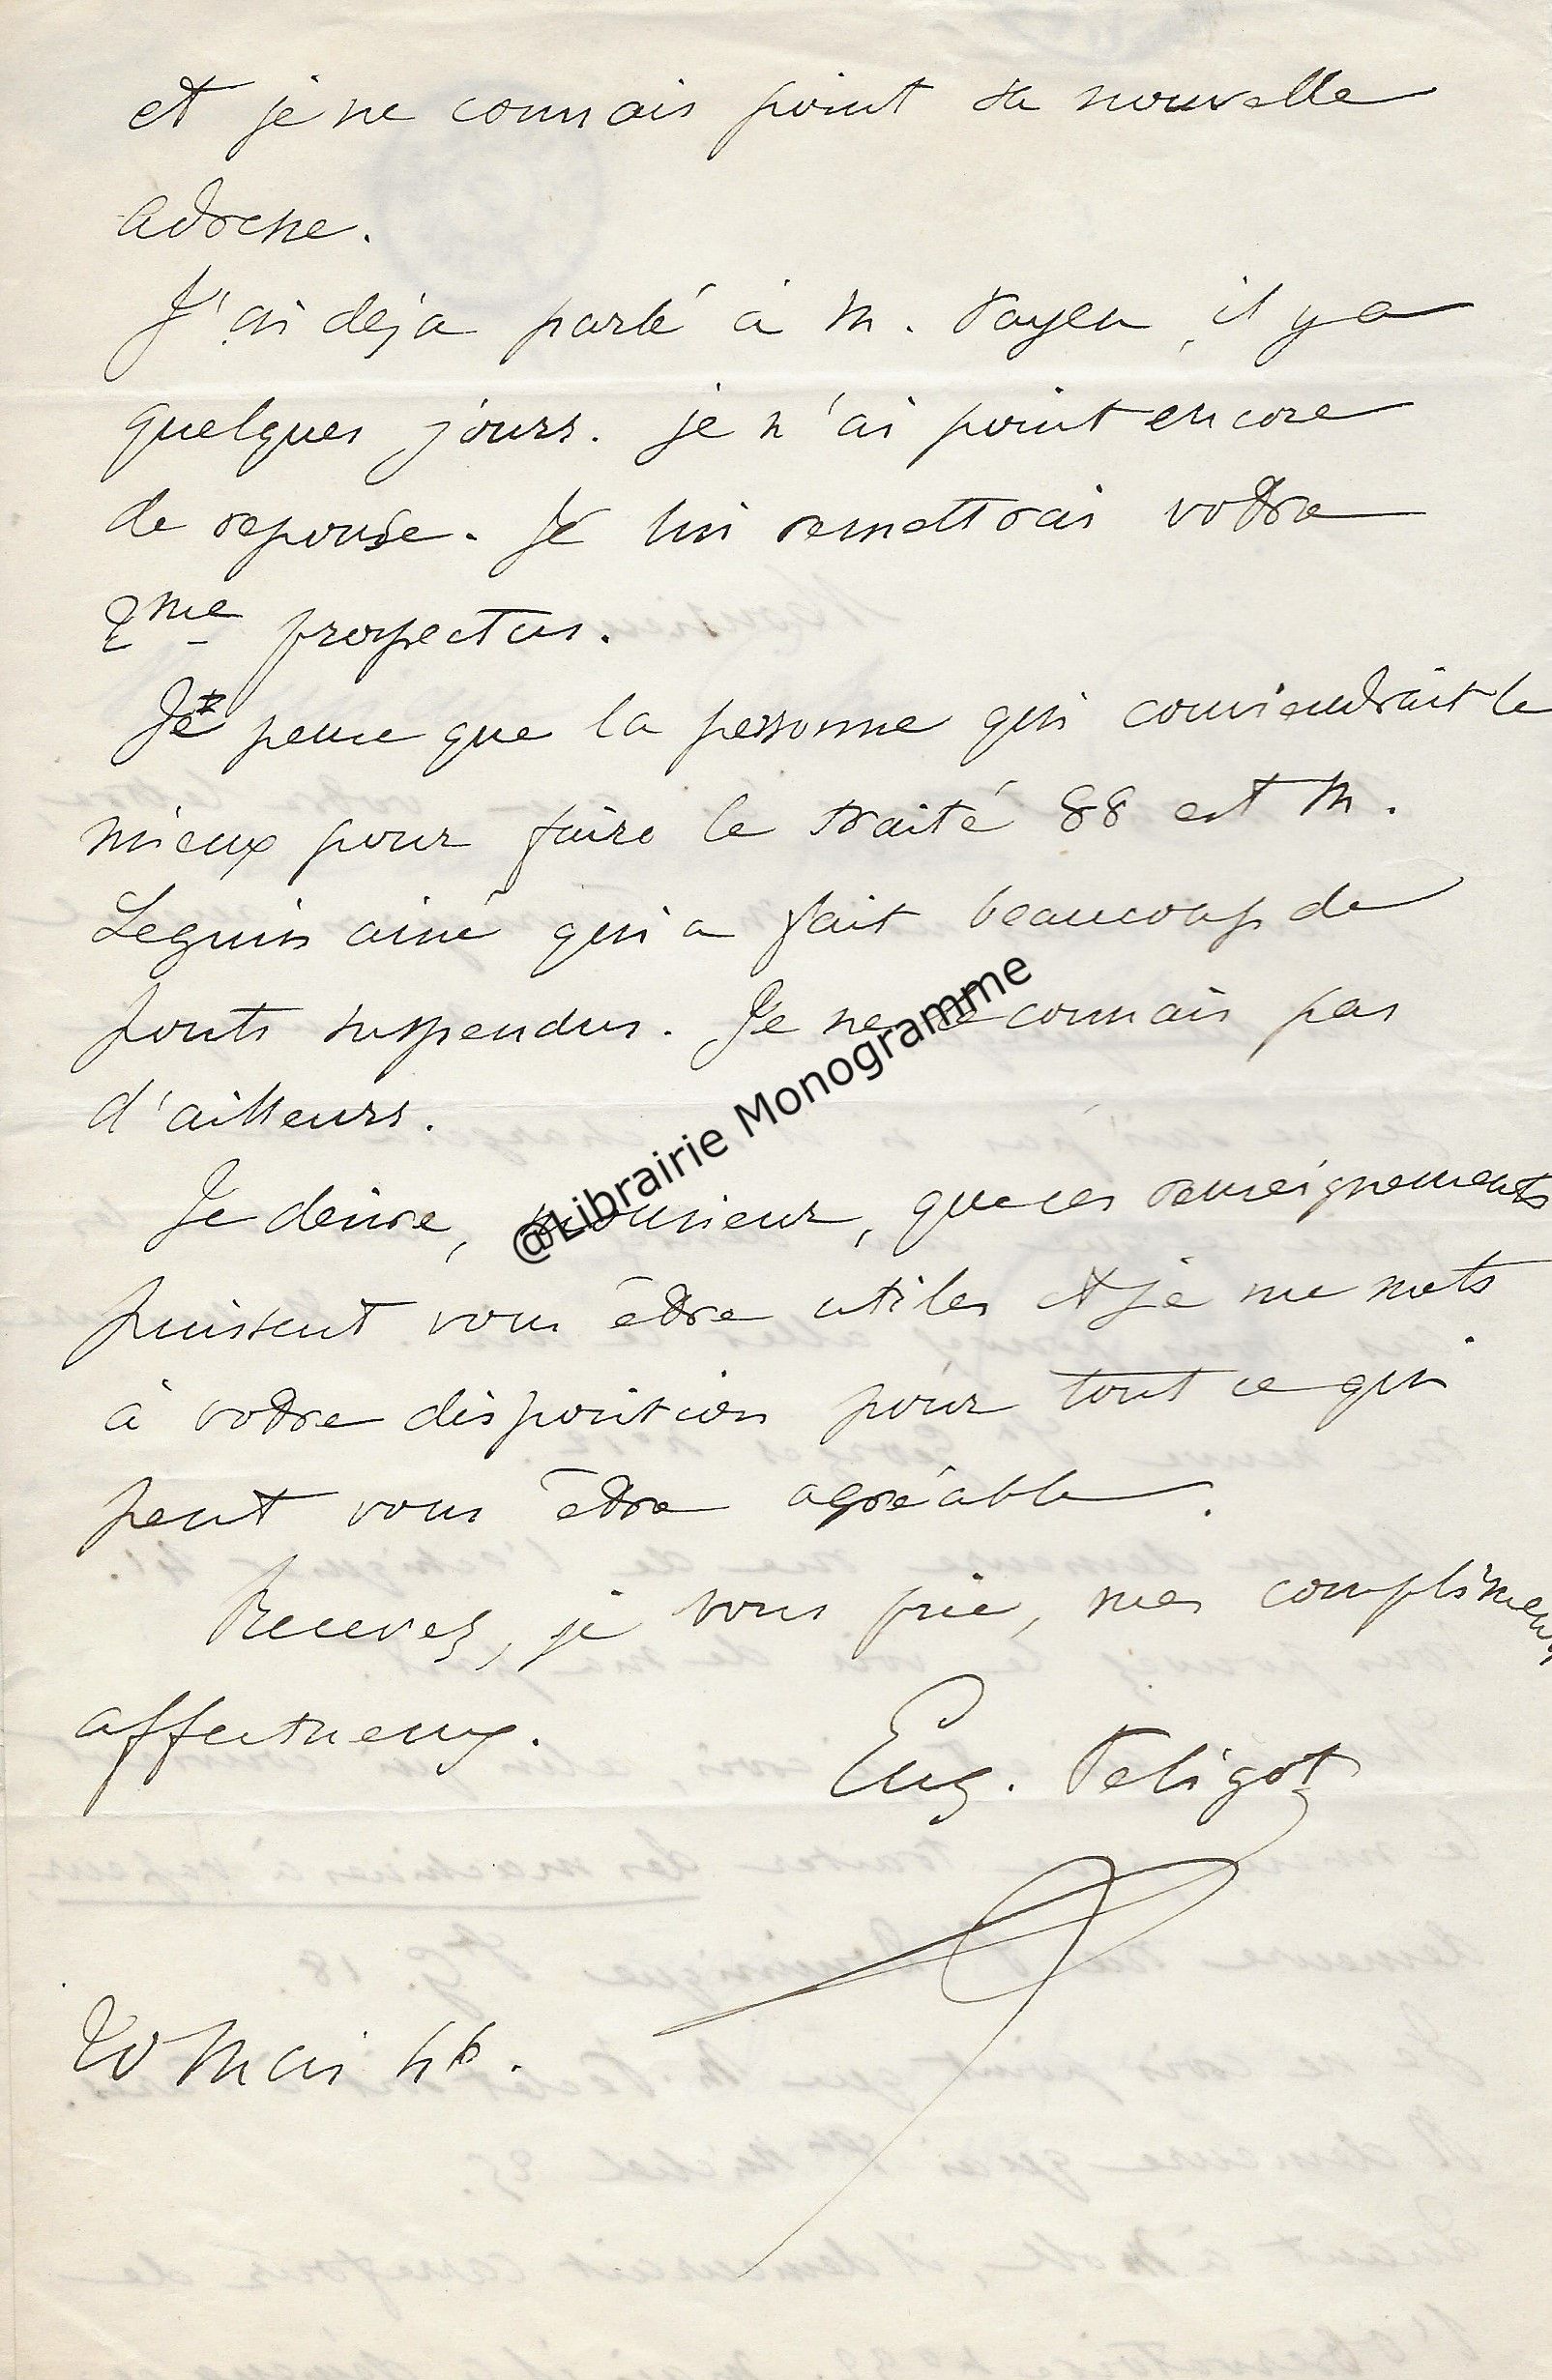 et je ne connais point sa nouvelle
adresse.
J'ai déja parlé à M. Payen, il y a
quelques jours. je n'ai point encore
de reponse. Je lui remettrai votre
2me prospectus.
Je pense que la personne qui conviendrait le
mieux pour faire le traité 88 est M.
Seguin ainé qui a fait beaucoup de
ponts suspendus. Je ne le connais pas
d'ailleurs.
Je desire, monsieur, que ces renseignements
puissent vous être utiles et je me mets
à votre disposition pour tout ce qui
peut vous être agréable.
Recevez, je vous prie, mes compliments
affectueux.
Eug. Peligot
Mai 46.
@Librairie Monogramme